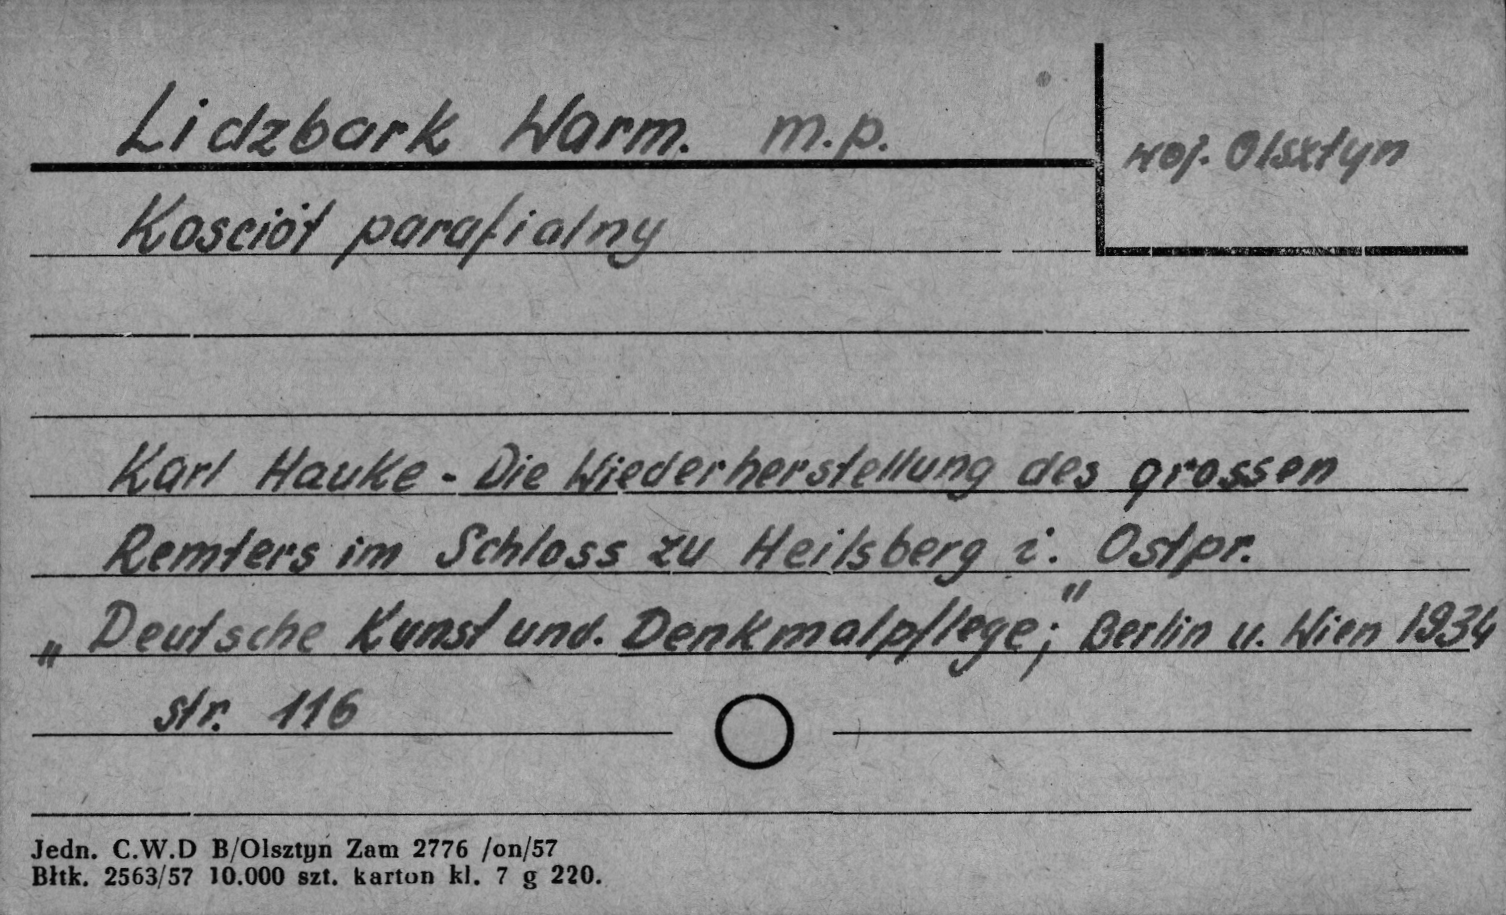 Lidzbark Warm. m.p.
woj. Olsztyn
Kościół parafialny
Karl Hauke - Die Wiederherstellung des grossen
Remters im Schloss zu Heilsberg i. Ostpr.
„Deutsche Kunst und. Denkmalpflege;" Berlin u. Wien 1934
str. 116
Jedn. C.W.D B/Olsztyn Zam 2776 /on/57
Błtk. 2563/57 10.000 szt. karton kl. 7 g 220.